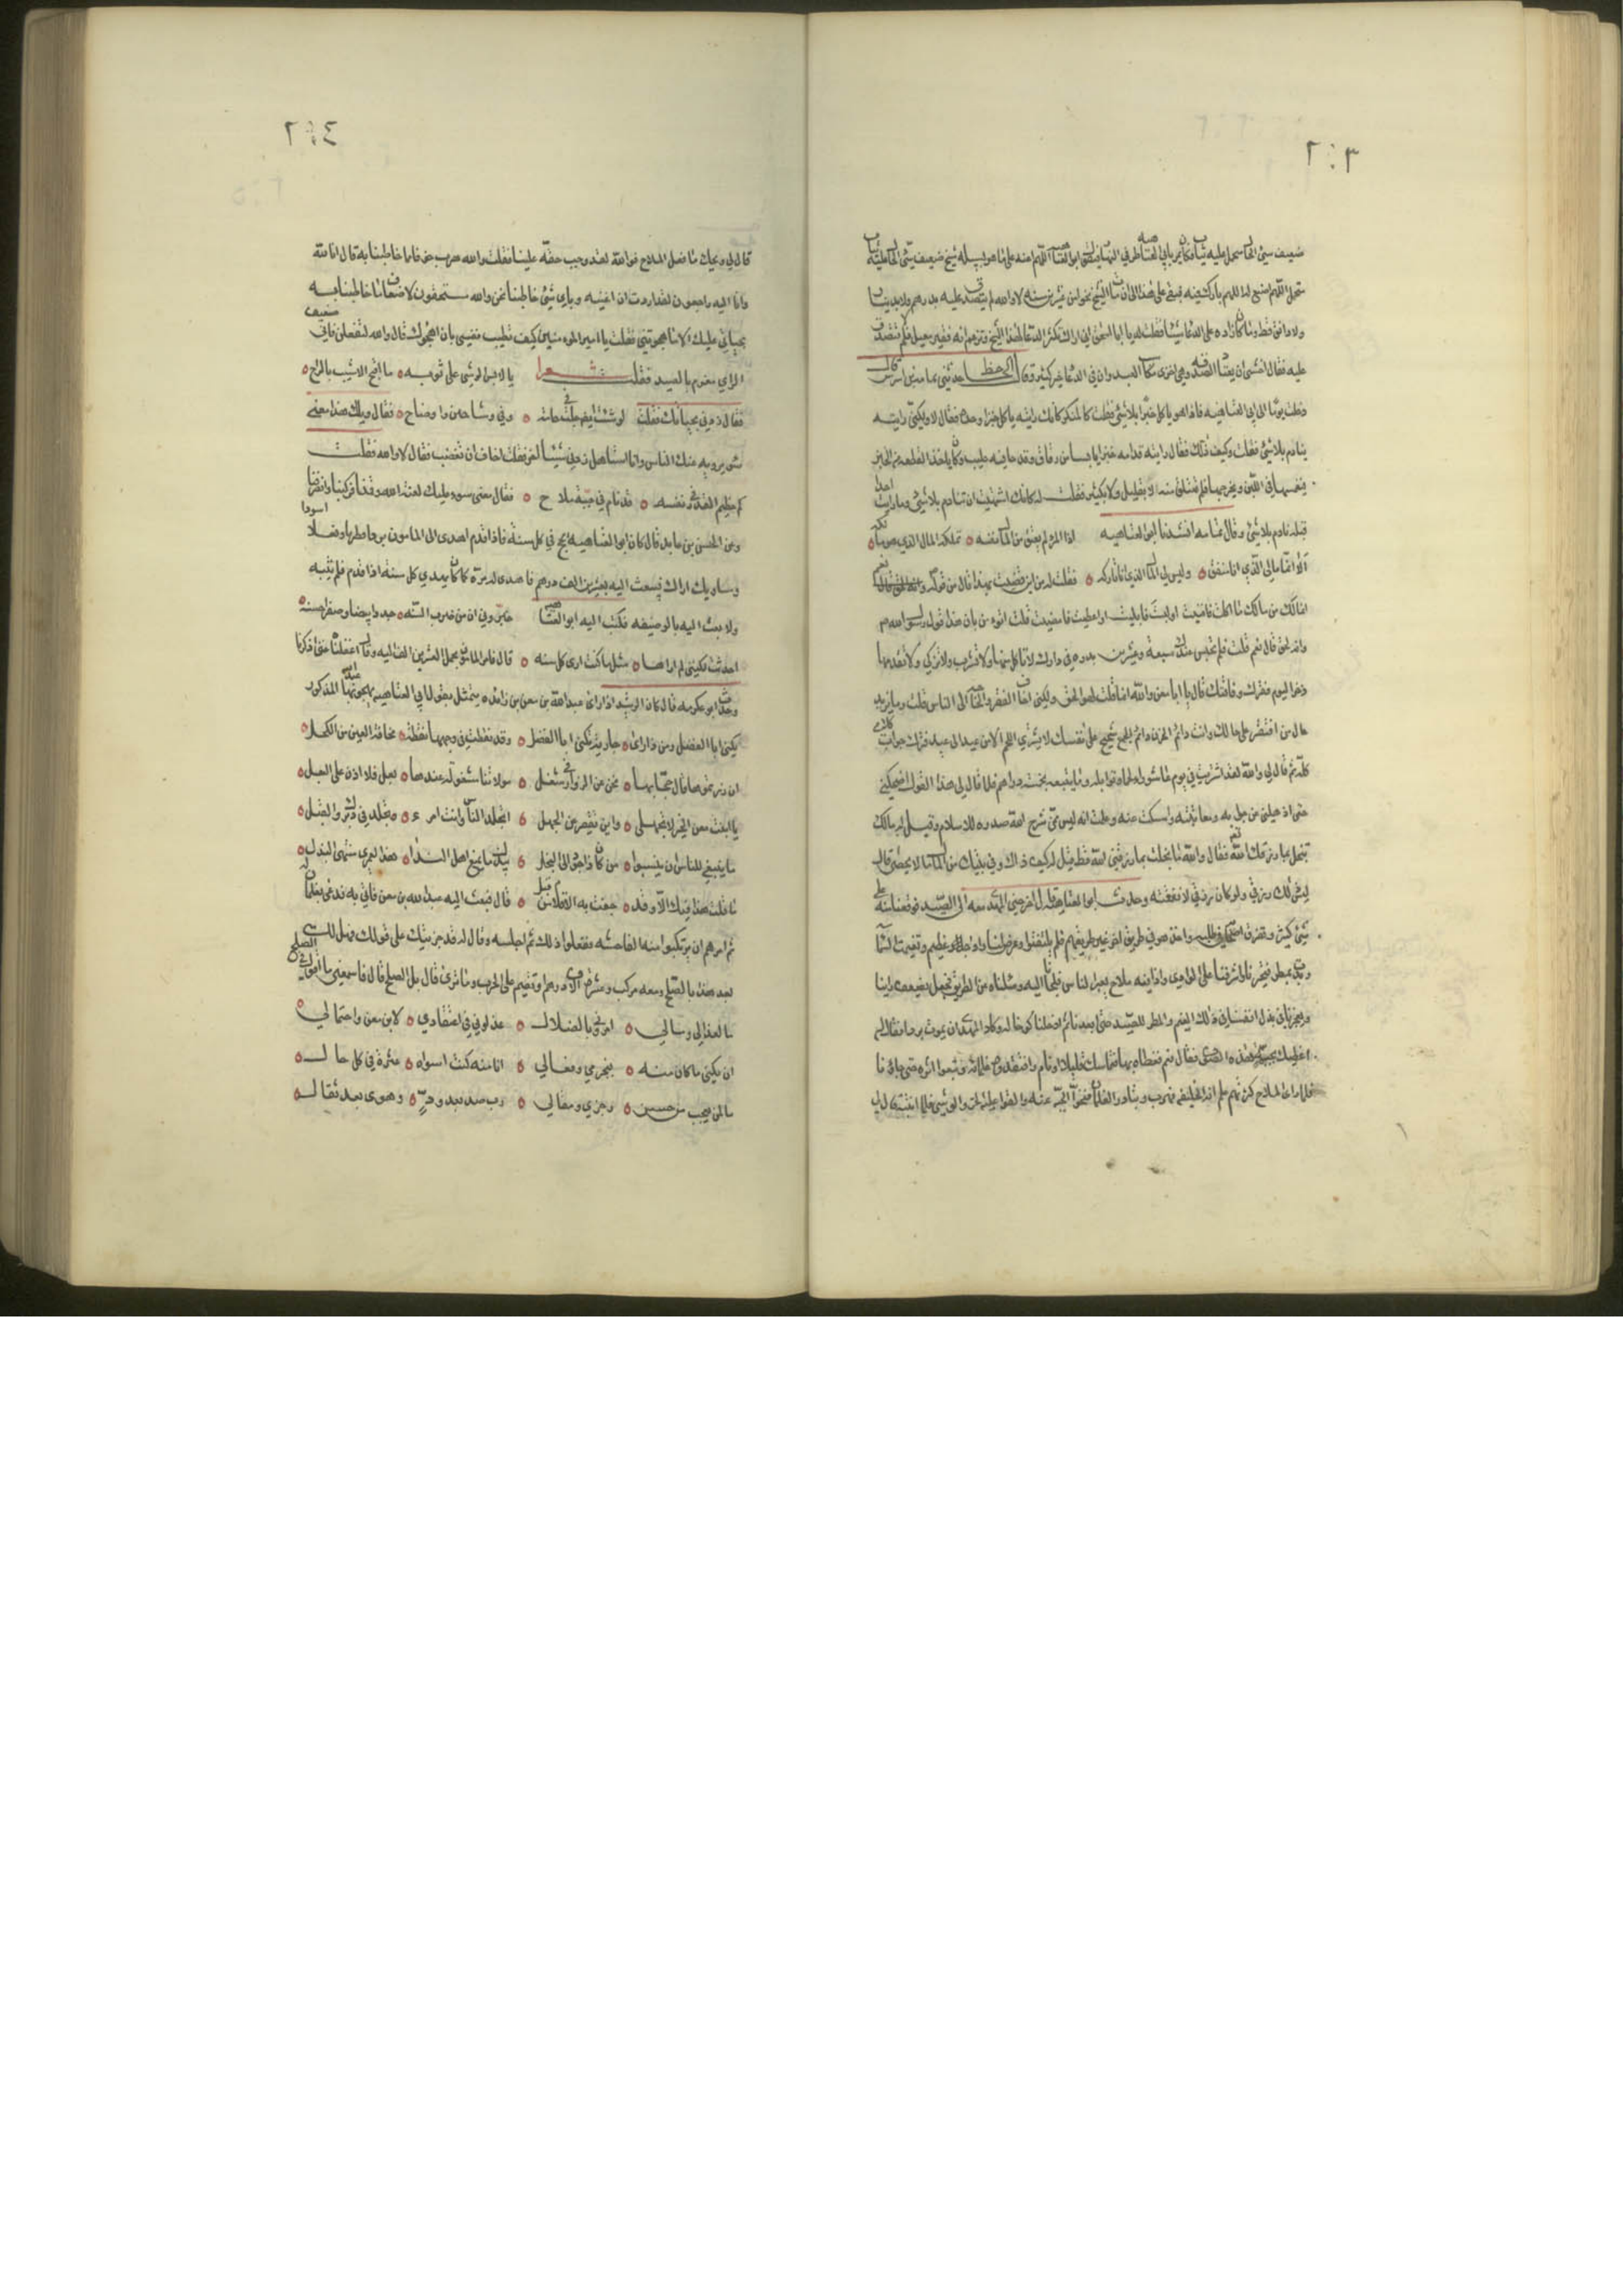 ٢٠٣
ضعيف سيئ الحال متجمل عليه ثياب فكان يمر بابي العتاهيه طرفي النهار فيقول ابو العتاهيه اللهم اعنه على ما هو بسبيله شيخ ضعيف سيئ الحال عليه ثياب
متجمل اللهم اصنع له اللهم بارك فيه فبقي على هذا الى ان مات الشيخ نحوا من عشرين سنه لا والله لم يتصدق عليه بدرهم ولا بدينار
ولا دانق قط وما كان زاده على الدعا شيئا فقلت له يا ابا اسحق اني اراك تكثر الدعا لهذا الشيخ وتزعم انه فقير معيل فلم لا تتصدق
عليه فقال اخشى ان يعتاد الصدقه وهي اخزى مكاسب العبد وان في الدعا خير كثير وقال الجاحظ حدثني ثمامه بن اشرس قال
دخلت يوما الى ابي العتاهيه فاذا هو ياكل خبزا بلا شئ فقلت كالمنكر كانك رايته ياكل خبزا وحده فقال لا ولكني رايته
يتادم بلا شئ فقلت وكيف ذلك فقال رايته قدامه خبز يابس من رقاق وقدحا فيه حليب وكان ياخذ القطعه من الخبز
يغمسها في اللبن ويخرجها فلم تتعلق منه لا بقليل ولا بكثير فقلت له كانك اشتهيت ان تتادم بلا شئ وما رايت احدا
قبلك تادم بلا شئ وقال ثمامه انشدنا ابو العتاهيه اذا المرء لم يعتق من المال نفسه تملكه المال الذي هو مالكه
الا انما مالي الذي انا منفق وليس لي المال الذي انا تاركه فقلت له من اين قضيت بهذا قال من قوله
انما لك من مالك ما اكلت فافنيت او لبست فابليت او اعطيت فامضيت قلت اتؤمن بان هذا قول رسول الله
وانه الحق قال نعم قلت فلم تحبس عندك سبعة وعشرين بدره في دارك لا تاكل منها ولا تشرب ولا تزكي ولا تقدمها
ذخرا ليوم فقرك وفاقتك قال يا ابا معن والله ان ما قلت لهو الحق ولكني اخاف الفقر والحاجه الى الناس قلت وما يزيد
حال من افتقر على حالك وانت دائم الحزن دائم الجمع شحيح على نفسك لا تشتري اللحم الا من عيد الى عيد فترك جوابي
كله ثم قال لي والله لقد اشتريت في يوم عاشورا لحما وتوابله وما يتبعه بخمسة دراهم فلما قال لي هذا القول اضحكني
حتى اذهلني عن جوابه ومعاتبته وامسكت عنه وعلمت انه ليس ممن شرح الله صدره للاسلام وقيل له مالك
تبخل بما رزقك الله تعالى فقال والله ما بخلت بما رزقني الله قط قيل له كيف ذاك وفي بيتك من المال ما لا يحصى قال
ليس ذلك رزقي ولو كان رزقي لانفقته وحدث ابو العتاهيه قال اخرجني المهدي معه الى الصيد فوقعنا منه على
شئ كثير وتفرق اصحابه في طلبه واخذ هو في طريق اخر غير طريقهم فلم يلتفتوا وعرض لنا واد عظيم وتغيمت السما
وبدت بمطر فتحيرنا واشرفنا على الوادي واذا فيه ملاح يعبر الناس فلجانا اليه وسالناه عن الطريق فجعل يضعف راينا
ويعجزنا في بذل انفسنا في ذلك الغيم والمطر للصيد حتى ابعدنا ثم ادخلنا كوخا له وكاد المهدي ان يموت بردا فقال له
اغطيك بجبتي هذه الصوف فقال نعم فغطاه بها فتماسك قليلا ونام وافتقده غلمانه وتبعوا اثره حتى جاؤنا
فلما راى الملاح كثرتهم علم انه الخليفه فهرب وتبادر الغلمان فنحوا الجبه عنه والقوا عليه الخز والوشي فلما انتبه قال لي
٢٠٤
قال لي ويحك ما فعل الملاح فوالله لقد وجب حقه علينا فقلت والله هرب خوفا مما خاطبنا به قال انا لله
وانا اليه راجعون لقد اردت ان اغنيه وباي شئ خاطبنا نحن والله مستحقون لاضعاف ما خاطبنا به
بحياتي عليك الا ما هجوتني فقلت يا امير المومنين كيف تطيب نفسي بان اهجوك قال والله لتفعلن فاني ضعيف
الراي مغرم بالصيد فقلت شعرا يا لابس الوشي على ثوبه ما اقبح الاشيب بالراح
فقال زدني بحياتك فقلت لو شئت ايضا جلت في خامة وفي وشاحين واوضاح فقال ويلك هذا معنى
سو يرويه عنك الناس وانا استاهل زدني شيئا اخر فقلت اخاف ان تغضب فقال لا والله فقلت
كم من عظيم القدر في نفسه قد نام في جبة ملاح فقال معنى سوء عليك لعنة الله وقمنا فركبنا وانصرفنا
وعن الحسن بن عابد قال كان ابو العتاهيه يحج في كل سنة فاذا قدم اهدى الى المامون بردا ومطرفا ونعلا سودا
ومساويك اراك فيبعث اليه بعشرين الف درهم فاهدى له مرة كما كان يهدي كل سنه اذا قدم فلم يثبه
ولا بعث اليه بالوظيفه فكتب اليه ابو العتاهيه خبروني ان من ضرب السنه جددا بيضا وصفرا حسنه
احدثت لكنني لم ارها مثل ما كنت ارى كل سنه قال فامر المامون بحمل العشرين الف اليه وقال اغفلنا حتى ذكرنا
وحدث ابو عكرمه قال كان الرشيد اذا راى عبد الله بن معن بن زائده يتمثل بقول ابي العتاهيه يهجو عبد الله المذكور
يكنى ابا الفضل ومن ذا راى جارية تكنى ابا الفضل وقد نقطت في وجهها نقطة مخافة العين من الكحل
ان زرتموها قال حجابها نحن عن الزوار في شغل مولاتنا مشغولة عندها بعل فلا اذن على البعل
يا ابنت معن الخير لا تجهلي واين تقصير عن الجهل اتجلد الناس وانت امرء تجلد في دبر والقبل
ما ينبغي للناس ان ينسبوا من كان ذا جود الى البخل يبذل ما يمنع اهل الندا هذا لعمري منتهى البذل
ما قلت هذا فيك الا وقد جفت به الاقلام من قبل قال فبعث اليه عبد الله بن معن فاتي به فدعى بغلمان له
ثم امرهم ان يرتكبوا منه الفاحشه ففعلوا ذلك ثم اجلسه وقال له قد جزيتك على قولك فهل لك في الصلح
بعد هذا بالصلح ومعه مركب وعشرة الاف درهم او تقيم على الحرب وما ترى قال بل الصلح قال فاسمعني ما تقول في الصلح
ما لعذالي ومالي امروني بالضلال عذلوني في اغتفاري لابن معن واحتمالي
ان يكن ما كان منه فبجرمي وفعالي انا منه كنت اسواه عثرة في كل حال
ما لمن يعجب من حسن رجزي ومقالي رب صد بعد ود وهوى بعد تقال